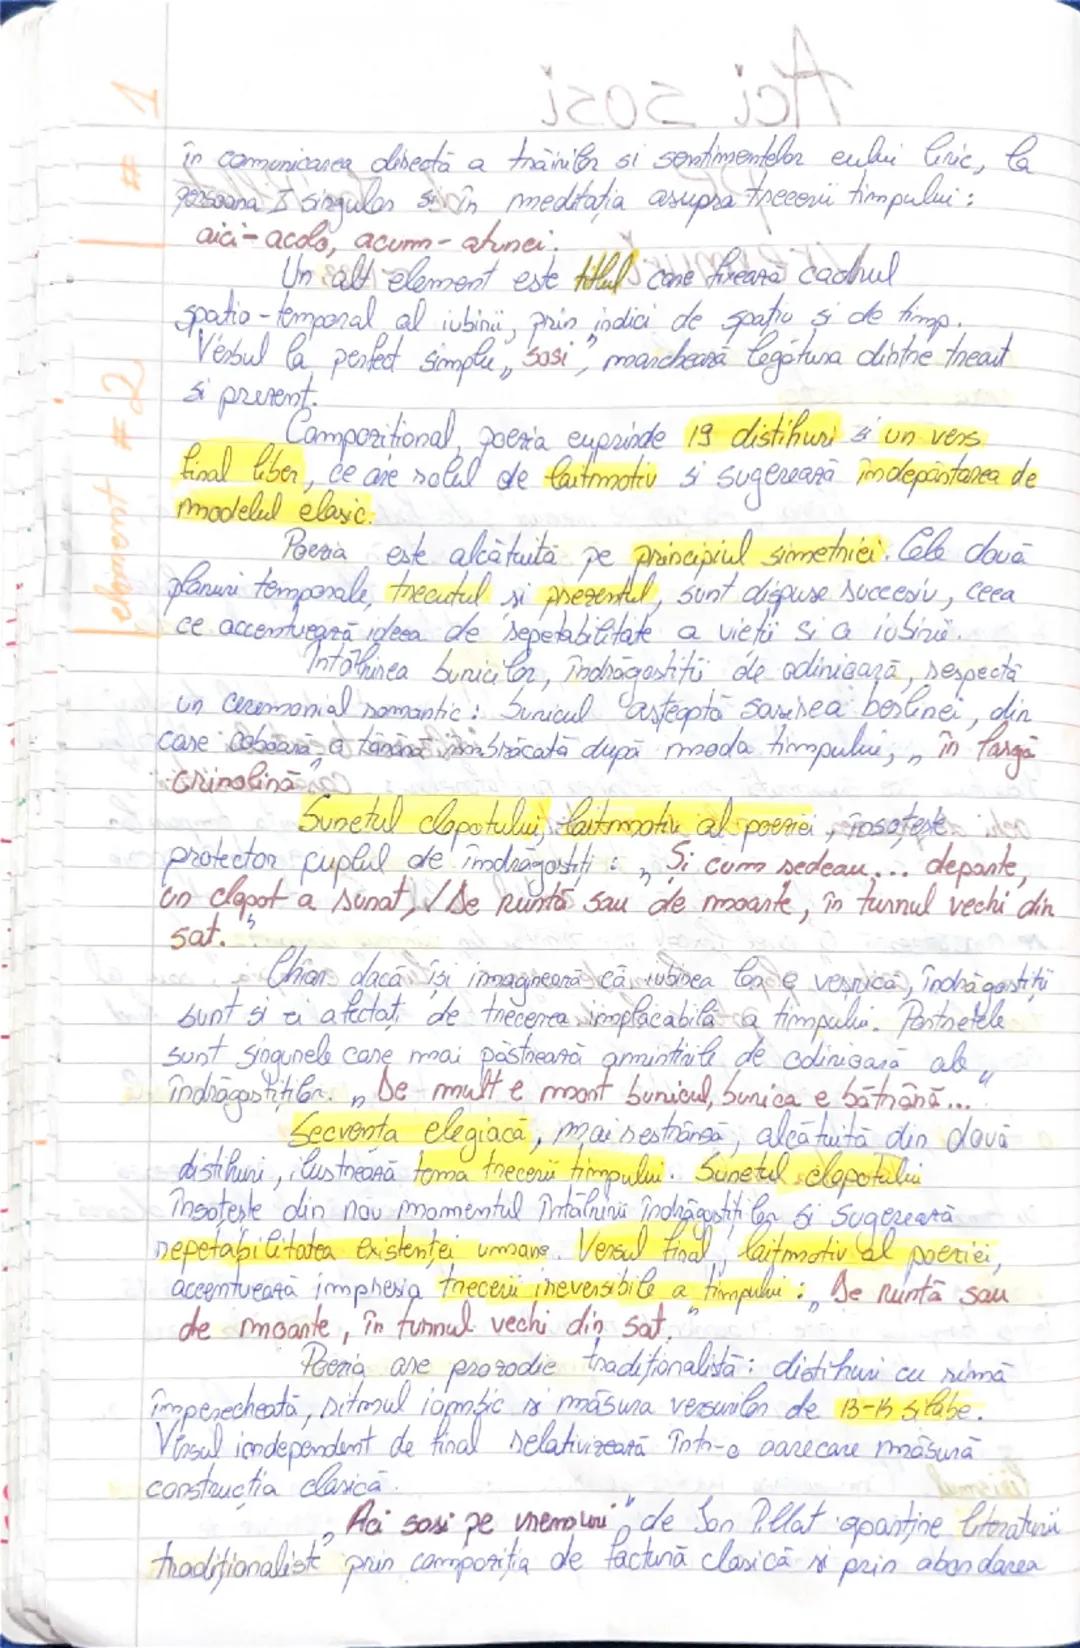 Aci sosi
# 1
în comunicarea directă a trăirilor si sentimentelor eului liric, la
persoana I singular si în meditația asupra trecerii timpului:
aici-acolo, acum-atunci.
Un alt element este titlul care fixează cadrul
spatio-temporal al iubirii, prin indici de spațiu si de timp.
Verbul la perfect simplu „sosi”, marchează legătura dintre trecut
si prezent.
element # 2
Compozitional, poezia cuprinde 19 distihuri si un vers
final liber, ce are rolul de laitmotiv si sugerează îndepărtarea de
modelul clasic.
Poezia este alcătuită pe principiul simetriei. Cele două
planuri temporale, trecutul si prezentul, sunt dispuse succesiv, ceea
ce accentuează ideea de repetabilitate a vieții si a iubirii.
Întâlnirea bunicilor, îndrăgostiții de odinioară, respectă
un ceremonial romantic: bunicul așteaptă sosirea berlinei, din
care coboară o tânără îmbrăcată după moda timpului, „în largă
crinolină”
Sunetul clopotului, laitmotiv al poeziei, însoțește
protector cuplul de îndrăgostiți: „Si cum sedeau... departe,
un clopot a sunat, / De nuntă sau de moarte, în turnul vechi din
sat.”
Chiar dacă își imaginează că iubirea lor e veșnică, îndrăgostiții
sunt si ei afectați de trecerea implacabilă a timpului. Portretele
sunt singurele care mai păstrează amintirile de odinioară ale
îndrăgostiților. „De mult e mort bunicul, bunica e bătrână...”
Secvența elegiacă, mai restrânsă, alcătuită din două
distihuri, ilustrează tema trecerii timpului. Sunetul clopotului
însoțește din nou momentul întâlnirii îndrăgostiților si sugerează
repetabilitatea existenței umane. Versul final, laitmotiv al poeziei,
accentuează impresia trecerii ireversibile a timpului: „De nuntă sau
de moarte, în turnul vechi din sat.”
Poezia are prozodie tradiționalistă: distihuri cu rimă
împerecheată, ritmul iambic si măsura versurilor de 13-14 silabe.
Versul independent de final relativizează într-o oarecare măsură
construcția clasică.
„Aci sosi pe vremuri” de Ion Pillat aparține literaturii
tradiționaliste prin compoziția de factură clasică si prin abordarea